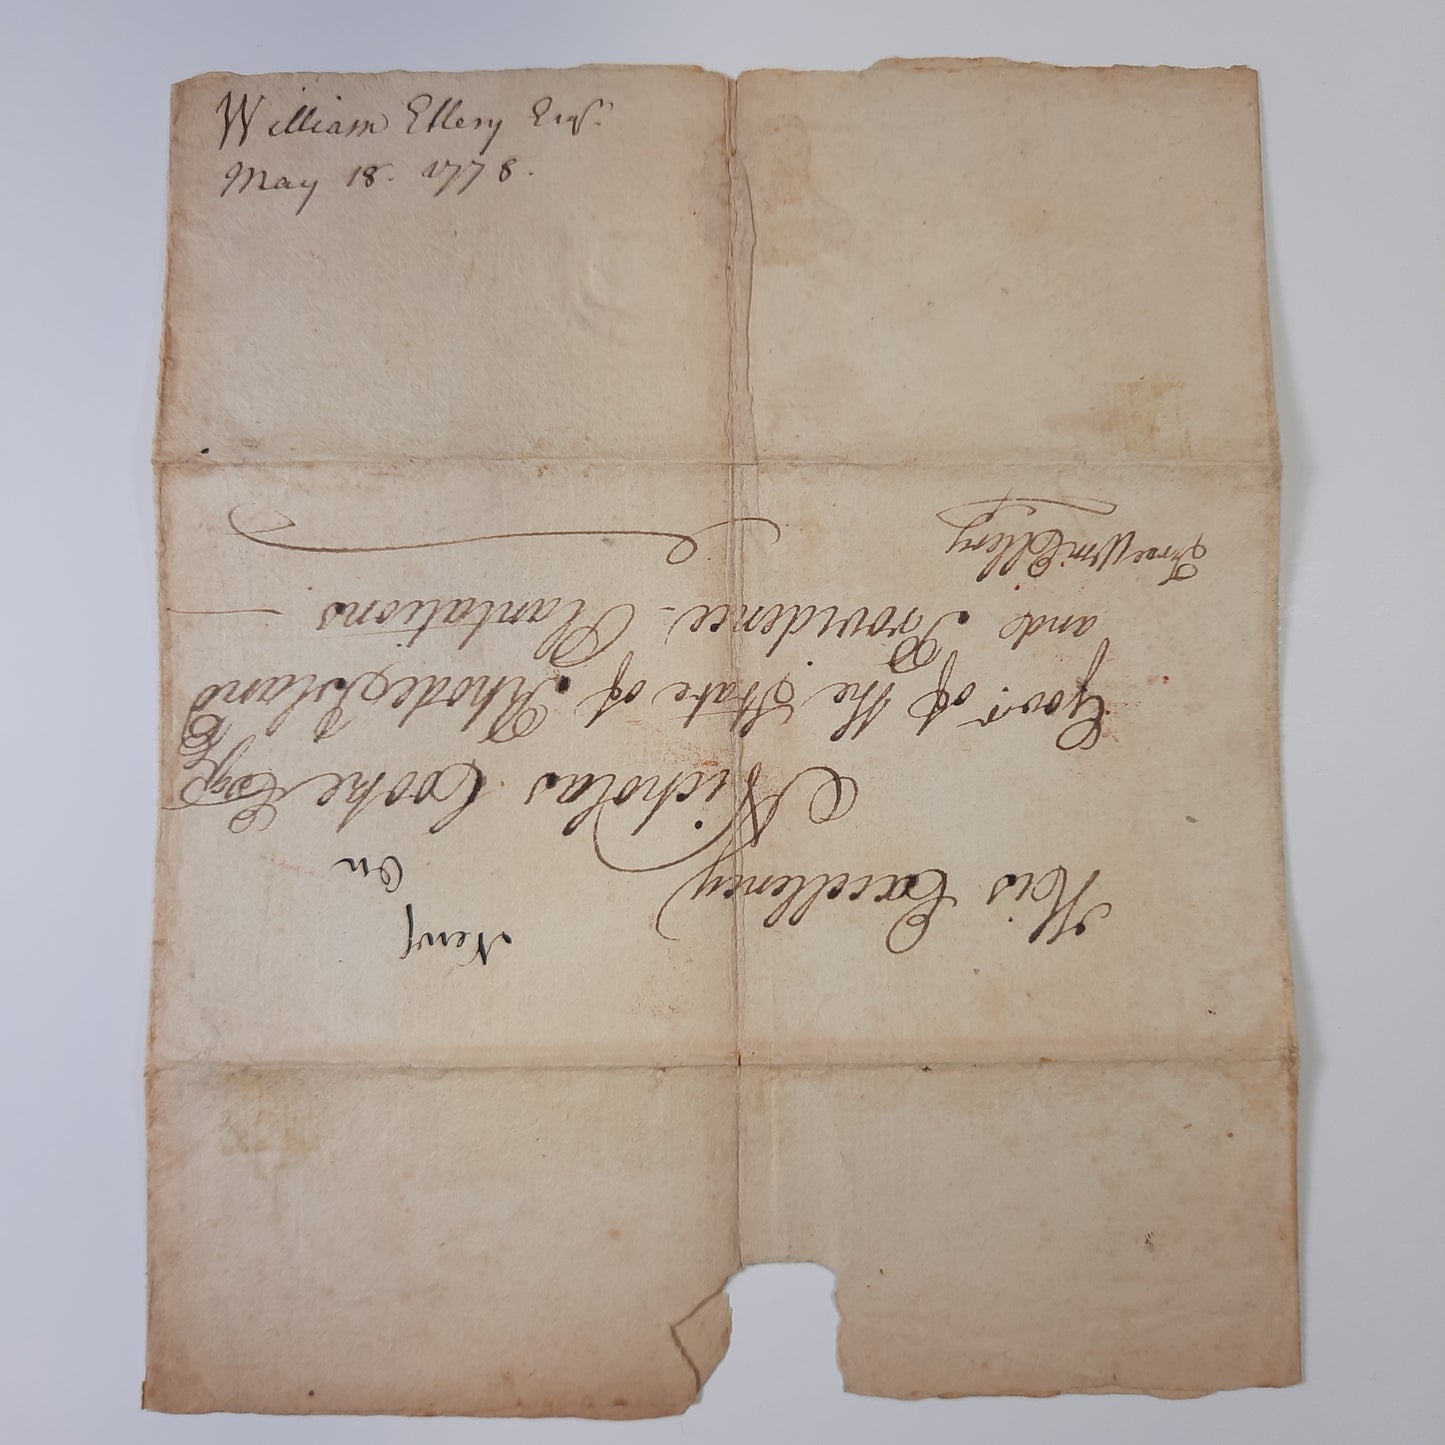 William Ellery Esqr.
May 18. 1778.
His Excellency
Nicholas Cooke Esqr
Govr. of the State of Rhode Island
and Providence Plantations
Free Wm Ellery
On